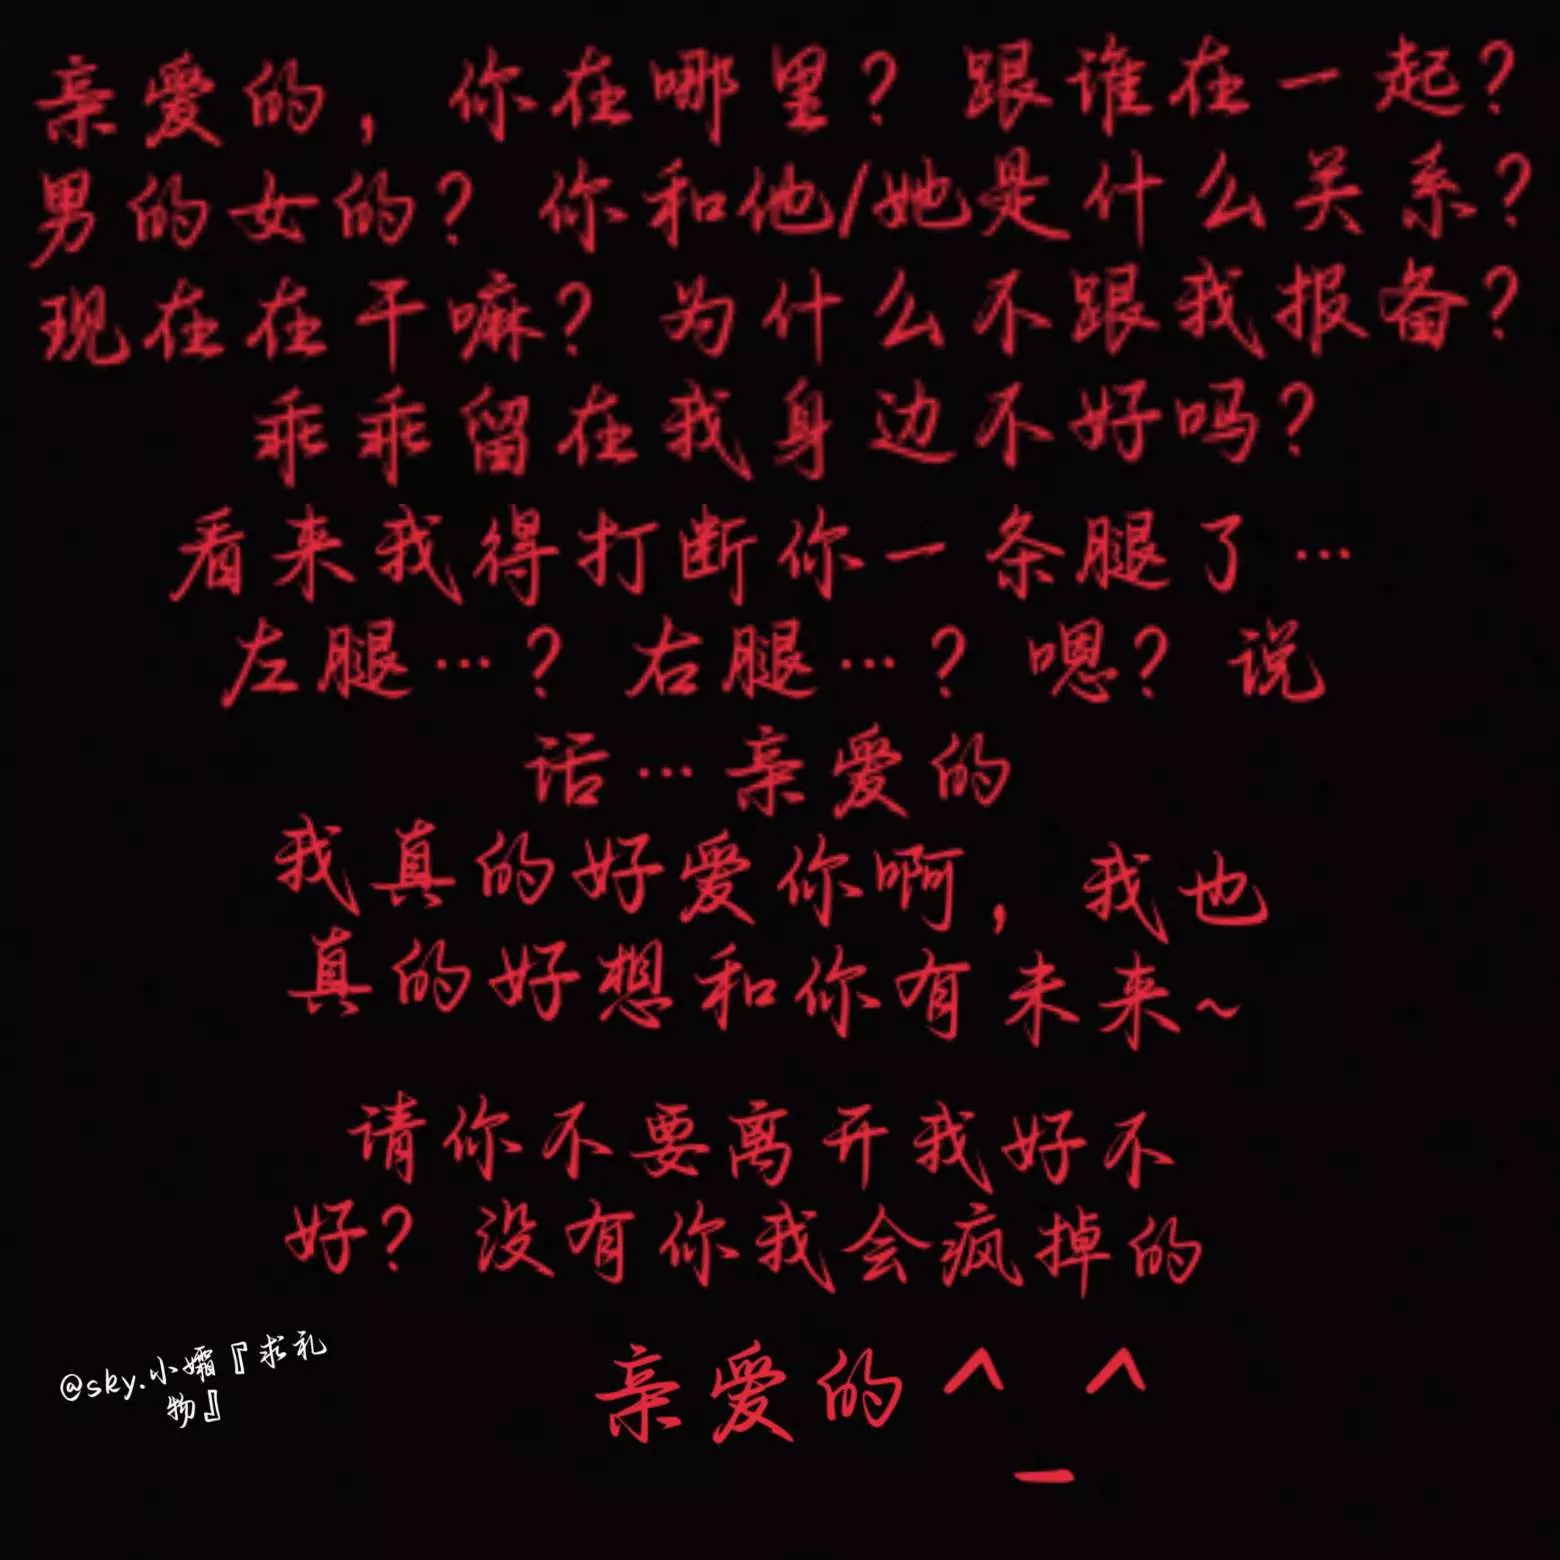 亲爱的，你在哪里？跟谁在一起？
男的女的？你和他/她是什么关系？
现在在干嘛？为什么不跟我报备？
乖乖留在我身边不好吗？
看来我得打断你一条腿了…
左腿…？右腿…？嗯？说
话…亲爱的
我真的好爱你啊，我也
真的好想和你有未来~
请你不要离开我好不
好？没有你我会疯掉的
亲爱的^_^
@sky.小孀『求礼
物』